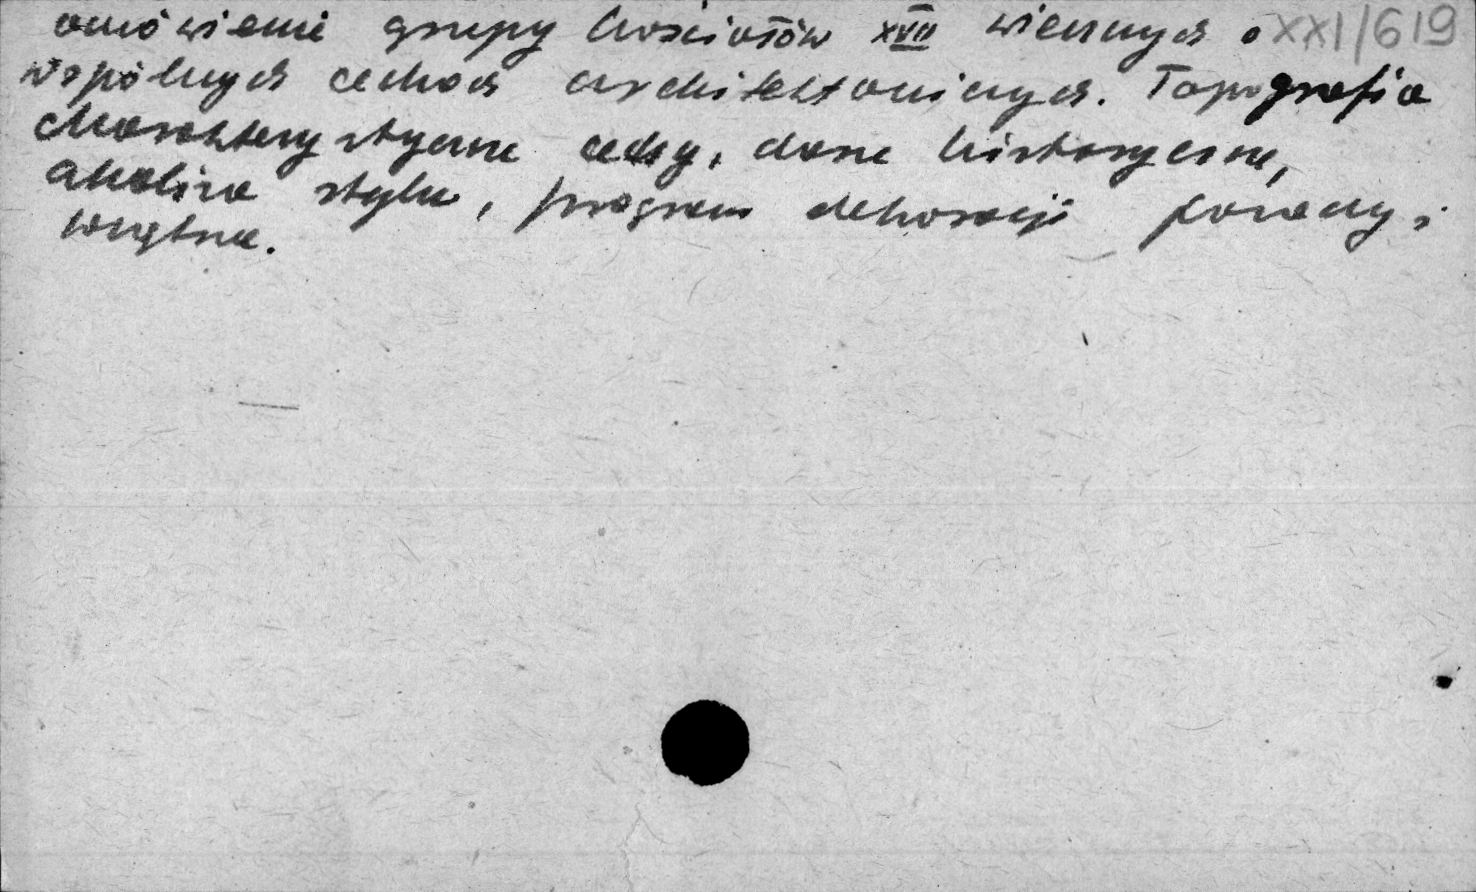 omówienie grupy kościołów XVII wiecznych o XXI/619
wspólnych cechach architektonicznych. Topografia
charakterystyczne cechy, dane historyczne,
analiza stylu, program dekoracji fasady i
wnętrza.